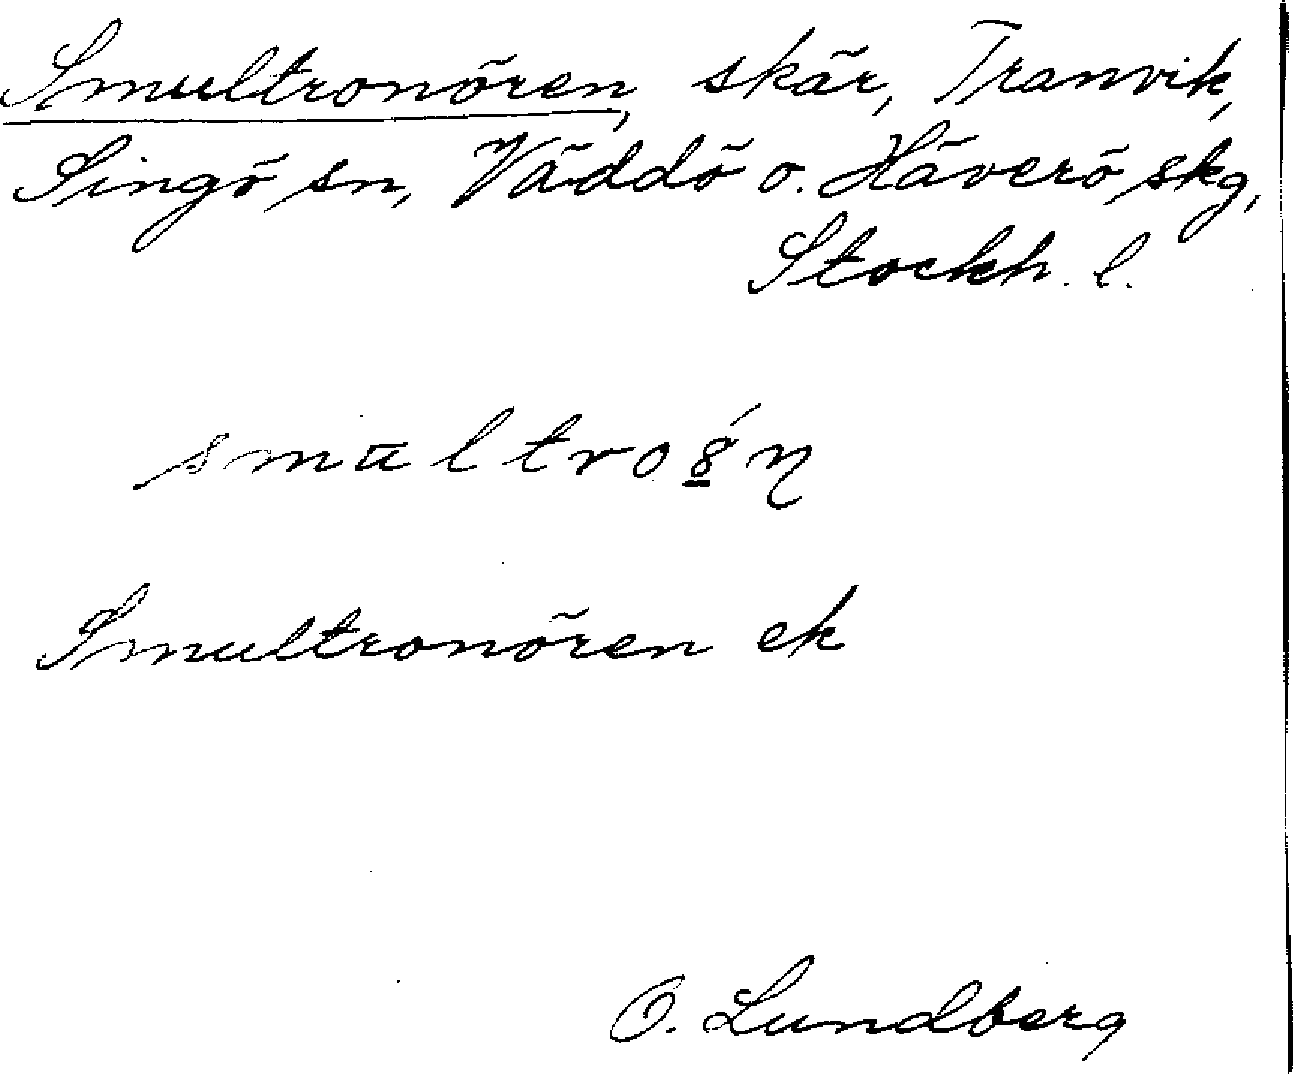 Smultronören, skär, Tranvik,
Singö sn, Väddö o. Häverö skg,
Stockh. l.
Smultronören ek
O. Lundberg